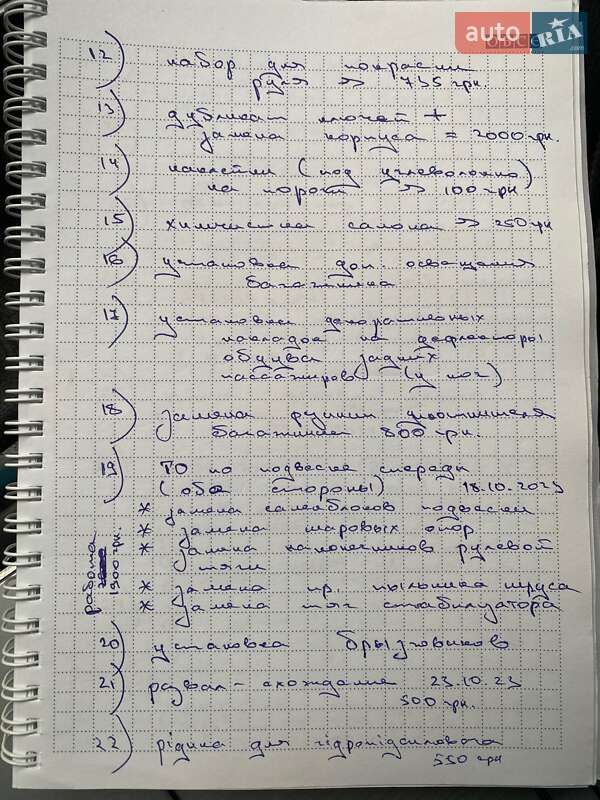 auto RIA .com
12) набор для покраски
руля => 735 грн.
13) дубликат ключей +
замена корпуса = 2000 грн.
14) наклейки (под углеволокно)
на пороги => 100 грн
15) химчистка салона => 250 грн
16) установка доп. освещения
багажника
17) установка декоративных
накладок на дефлекторы
обдува задних
пассажиров (у ног)
18) замена резинки уплотнителя
багажника 800 грн.
19) ТО по подвеске спереди
(обе стороны) 18.10.2023
* замена сайлентблоков подвески
* замена шаровых опор
* замена наконечников рулевой
тяги
* замена пр. пыльника шруса
* замена тяг стабилизатора
работа
1300 грн.
20) установка брызговиков
21) развал-схождение 23.10.23
500 грн.
22) рідина для гідропідсилювача
550 грн